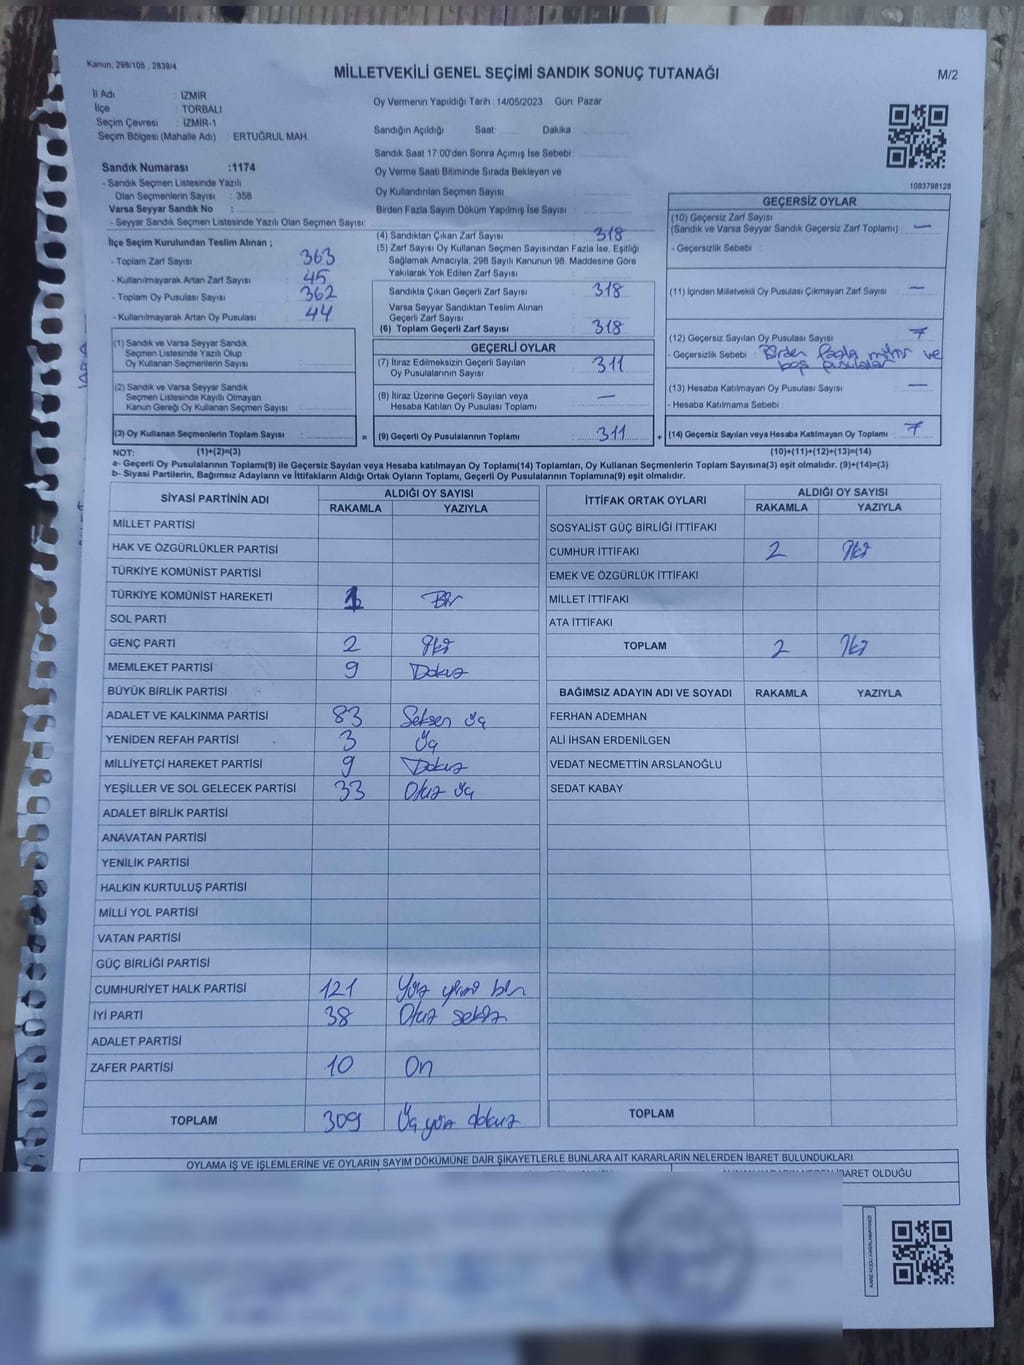 Kanun: 298/105 , 2839/4
MİLLETVEKİLİ GENEL SEÇİMİ SANDIK SONUÇ TUTANAĞI
M/2
İl Adı : İZMİR
İlçe : TORBALI
Seçim Çevresi : İZMİR-1
Seçim Bölgesi (Mahalle Adı) : ERTUĞRUL MAH.
Sandık Numarası :1174
- Sandık Seçmen Listesinde Yazılı
Olan Seçmenlerin Sayısı : 358
Varsa Seyyar Sandık No :
- Seyyar Sandık Seçmen Listesinde Yazılı Olan Seçmen Sayısı :
Oy Vermenin Yapıldığı Tarih : 14/05/2023 Gün: Pazar
Sandığın Açıldığı Saat: Dakika
Sandık Saat 17:00'den Sonra Açımış İse Sebebi :
Oy Verme Saati Bitiminde Sırada Bekleyen ve
Oy Kullandırılan Seçmen Sayısı :
Birden Fazla Sayım Döküm Yapılmış İse Sayısı :
1083798128
İlçe Seçim Kurulundan Teslim Alınan ;
- Toplam Zarf Sayısı : 363
- Kullanılmayarak Artan Zarf Sayısı : 45
- Toplam Oy Pusulası Sayısı : 362
- Kullanılmayarak Artan Oy Pusulası : 44
(1) Sandık ve Varsa Seyyar Sandık
Seçmen Listesinde Yazılı Olup
Oy Kullanan Seçmenlerin Sayısı :
(2) Sandık ve Varsa Seyyar Sandık
Seçmen Listesinde Kayıtlı Olmayan
Kanun Gereği Oy Kullanan Seçmen Sayısı :
(3) Oy Kullanan Seçmenlerin Toplam Sayısı :
(4) Sandıktan Çıkan Zarf Sayısı : 318
(5) Zarf Sayısı Oy Kullanan Seçmen Sayısından Fazla İse, Eşitliği
Sağlamak Amacıyla, 298 Sayılı Kanunun 98. Maddesine Göre
Yakılarak Yok Edilen Zarf Sayısı :
Sandıkta Çıkan Geçerli Zarf Sayısı : 318
Varsa Seyyar Sandıktan Teslim Alınan
Geçerli Zarf Sayısı :
(6) Toplam Geçerli Zarf Sayısı : 318
GEÇERLİ OYLAR
(7) İtiraz Edilmeksizin Geçerli Sayılan
Oy Pusulalarının Sayısı : 311
(8) İtiraz Üzerine Geçerli Sayılan veya
Hesaba Katılan Oy Pusulası Toplamı : —
(9) Geçerli Oy Pusulalarının Toplamı : 311
GEÇERSİZ OYLAR
(10) Geçersiz Zarf Sayısı
(Sandık ve Varsa Seyyar Sandık Geçersiz Zarf Toplamı) : —
- Geçersizlik Sebebi :
(11) İçinden Milletvekili Oy Pusulası Çıkmayan Zarf Sayısı : —
(12) Geçersiz Sayılan Oy Pusulası Sayısı : 7
- Geçersizlik Sebebi : Birden fazla mühür ve
boş pusulalar
(13) Hesaba Katılmayan Oy Pusulası Sayısı : —
- Hesaba Katılmama Sebebi :
(14) Geçersiz Sayılan veya Hesaba Katılmayan Oy Toplamı : 7
NOT: (1)+(2)=(3) (10)+(11)+(12)+(13)=(14)
a- Geçerli Oy Pusulalarının Toplamı(9) ile Geçersiz Sayılan veya Hesaba katılmayan Oy Toplamı(14) Toplamları, Oy Kullanan Seçmenlerin Toplam Sayısına(3) eşit olmalıdır. (9)+(14)=(3)
b- Siyasi Partilerin, Bağımsız Adayların ve İttifakların Aldığı Ortak Oyların Toplamı, Geçerli Oy Pusulalarının Toplamına(9) eşit olmalıdır.
SİYASİ PARTİNİN ADI ALDIĞI OY SAYISI
RAKAMLA YAZIYLA
MİLLET PARTİSİ
HAK VE ÖZGÜRLÜKLER PARTİSİ
TÜRKİYE KOMÜNİST PARTİSİ
TÜRKİYE KOMÜNİST HAREKETİ 1 Bir
SOL PARTİ
GENÇ PARTİ 2 İki
MEMLEKET PARTİSİ 9 Dokuz
BÜYÜK BİRLİK PARTİSİ
ADALET VE KALKINMA PARTİSİ 83 Seksen üç
YENİDEN REFAH PARTİSİ 3 Üç
MİLLİYETÇİ HAREKET PARTİSİ 9 Dokuz
YEŞİLLER VE SOL GELECEK PARTİSİ 33 Otuz üç
ADALET BİRLİK PARTİSİ
ANAVATAN PARTİSİ
YENİLİK PARTİSİ
HALKIN KURTULUŞ PARTİSİ
MİLLİ YOL PARTİSİ
VATAN PARTİSİ
GÜÇ BİRLİĞİ PARTİSİ
CUMHURİYET HALK PARTİSİ 121 Yüz yirmi bir
İYİ PARTİ 38 Otuz sekiz
ADALET PARTİSİ
ZAFER PARTİSİ 10 On
TOPLAM 309 Üç yüz dokuz
İTTİFAK ORTAK OYLARI ALDIĞI OY SAYISI
RAKAMLA YAZIYLA
SOSYALİST GÜÇ BİRLİĞİ İTTİFAKI
CUMHUR İTTİFAKI 2 İki
EMEK VE ÖZGÜRLÜK İTTİFAKI
MİLLET İTTİFAKI
ATA İTTİFAKI
TOPLAM 2 İki
BAĞIMSIZ ADAYIN ADI VE SOYADI RAKAMLA YAZIYLA
FERHAN ADEMHAN
ALİ İHSAN ERDENİLGEN
VEDAT NECMETTİN ARSLANOĞLU
SEDAT KABAY
TOPLAM
OYLAMA İŞ VE İŞLEMLERİNE VE OYLARIN SAYIM DÖKÜMÜNE DAİR ŞİKAYETLERLE BUNLARA AİT KARARLARIN NELERDEN İBARET BULUNDUKLARI
İBARET OLDUĞU